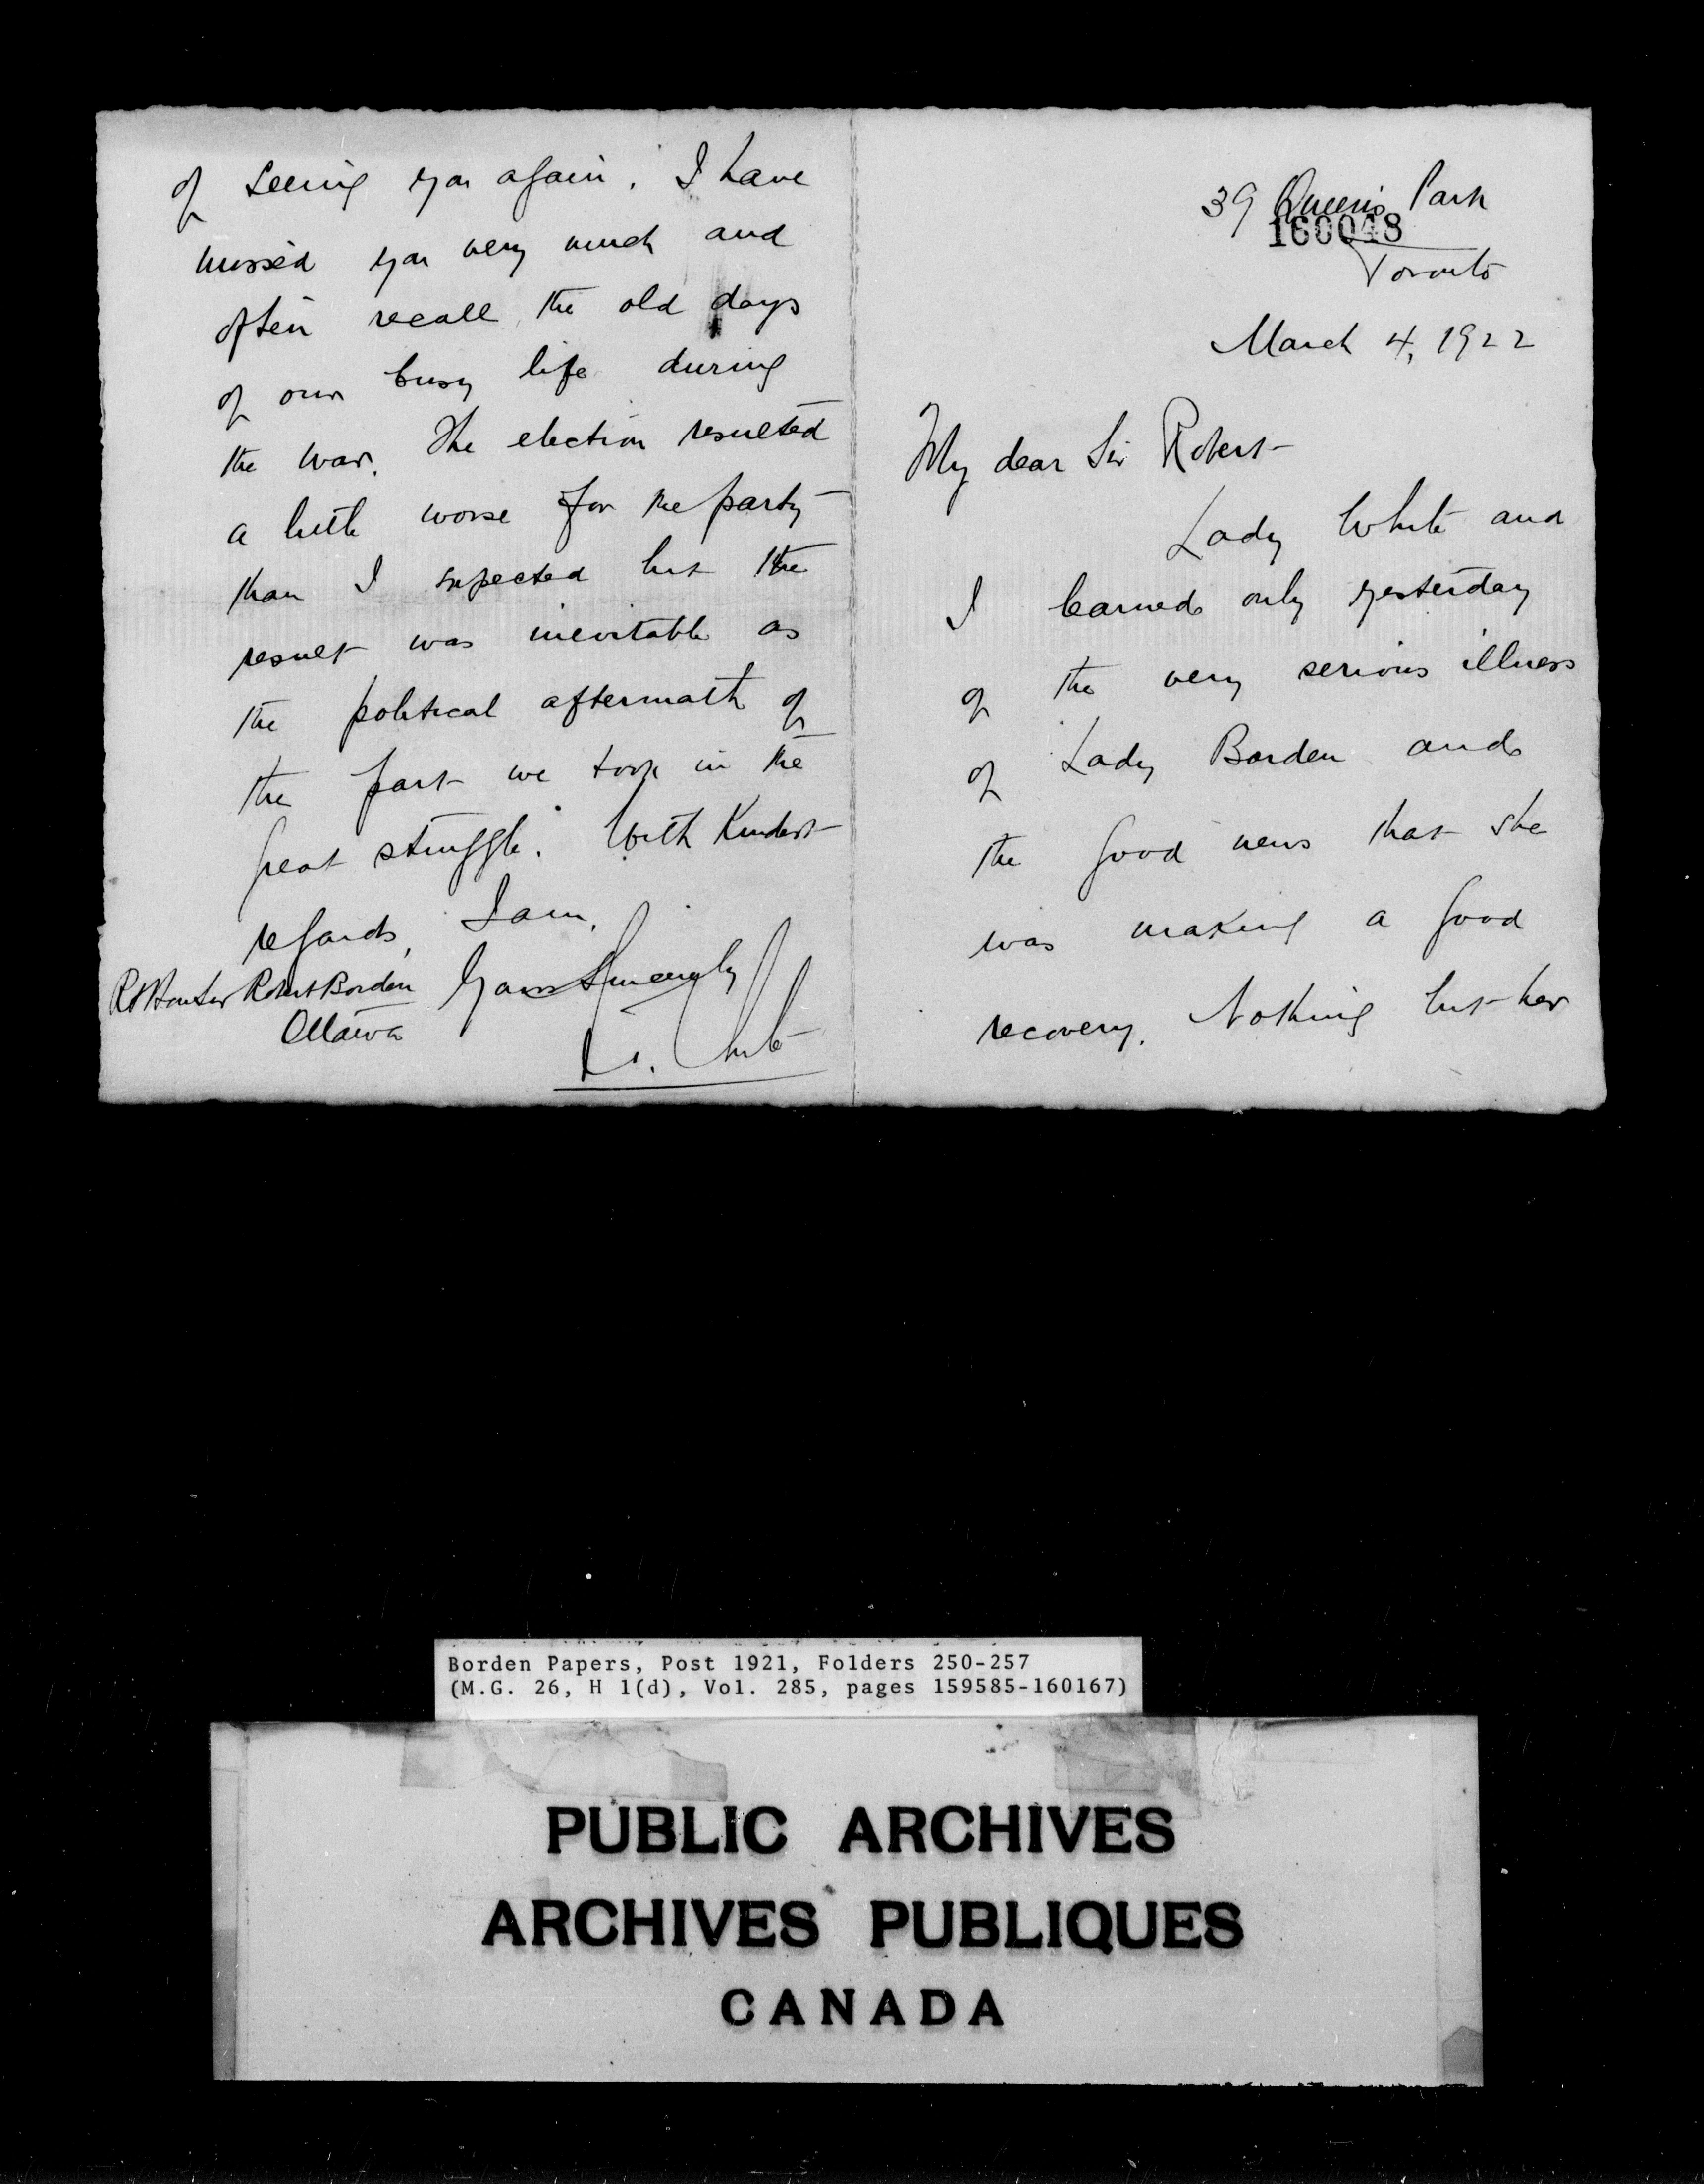 of seeing you again. I have
missed you very much and
often recall the old days
of our busy life during
the war. The election resulted
a little worse for the party
than I expected but the
result was inevitable as
the political aftermath of
the part we took in the
great struggle. With Kindest
regards, I am,
Yours Sincerely
White
Rt Hon Sir Robert Borden
Ottawa
39 Queen's Park
160048
Toronto
March 4, 1922
My dear Sir Robert
Lady White and
I learned only yesterday
of the very serious illness
of Lady Borden and
the good news that she
was making a good
recovery. Nothing but her
Borden Papers, Post 1921, Folders 250-257
(M.G. 26, H 1(d), Vol. 285, pages 159585-160167)
PUBLIC ARCHIVES
ARCHIVES PUBLIQUES
CANADA